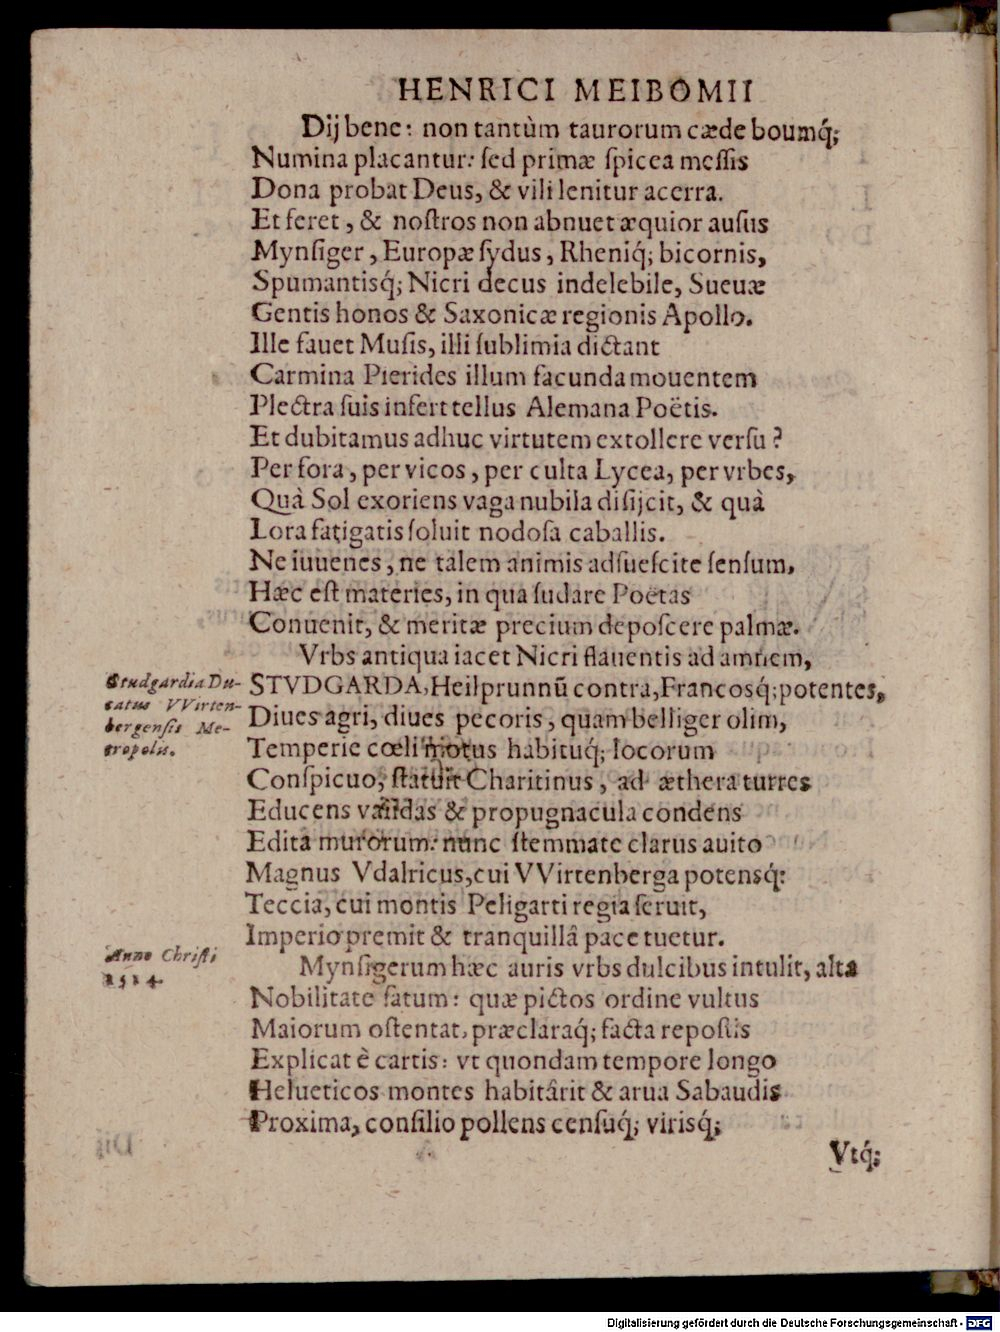 HENRICI MEIBOMII
Dij bene: non tantùm taurorum cæde boumq́;
Numina placantur: ſed primæ ſpicea meſſis
Dona probat Deus, & vili lenitur acerra.
Et feret, & noſtros non abnuet æquior auſus
Mynſiger, Europæ ſydus, Rheniq́; bicornis,
Spumantisq́; Nicri decus indelebile, Sueuæ
Gentis honos & Saxonicæ regionis Apollo.
Ille fauet Muſis, illi ſublimia dictant
Carmina Pierides illum facunda mouentem
Plectra ſuis inſert tellus Alemana Poëtis.
Et dubitamus adhuc virtutem extollere verſu?
Per fora, per vicos, per culta Lycea, per vrbes,
Quà Sol exoriens vaga nubila diſijcit, & quà
Lora fatigatis ſoluit nodoſa caballis.
Ne iuuenes, ne talem animis adſueſcite ſenſum,
Hæc eſt materies, in qua ſudare Poëtas
Conuenit, & meritæ precium depoſcere palmæ.
Vrbs antiqua iacet Nicri flauentis ad amnem,
Studgardia Du-
catus VVirten-
bergenſis Me-
tropolis.
STVDGARDA, Heilprunnū contra, Francosq́; potentes,
Diues agri, diues pecoris, quam belliger olim,
Temperie cœli motus habituq́; locorum
Conſpicuo, ſtatuit Charitinus, ad æthera turres
Educens validas & propugnacula condens
Edita murorum: nunc ſtemmate clarus auito
Magnus Vdalricus, cui VVirtenberga potensq́:
Teccia, cui montis Peligarti regia ſeruit,
Imperio premit & tranquillâ pace tuetur.
Anno Chriſti
1514.
Mynſigerum hæc auris vrbs dulcibus intulit, alta
Nobilitate ſatum: quæ pictos ordine vultus
Maiorum oſtentat, præclaraq́; facta repoſtis
Explicat è cartis: vt quondam tempore longo
Helueticos montes habitârit & arua Sabaudis
Proxima, conſilio pollens cenſuq́; virisq́;
Vtq́;
Digitalisierung gefördert durch die Deutsche Forschungsgemeinschaft - DFG